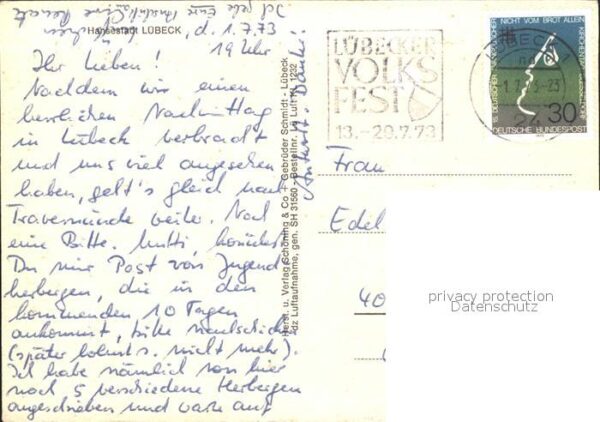 Ich
Hansestadt LÜBECK
d. 1.7.73
19 Uhr
Ihr Lieben!
Nachdem wir einen
herrlichen Nachmittag
in Lübeck verbracht
und uns viel angesehen
haben, geht's gleich nach
Travemünde weiter. Noch
eine Bitte. Mutti, könntest
Du mir Post von Jugend-
herbergen, die in den
kommenden 10 Tagen
ankommt, bitte nachschicken
(später lohnt's nicht mehr).
Ich habe nämlich von hier
noch 5 verschiedene Herbergen
angeschrieben und warte auf
Antwort. Danke!
Herst. u. Verlag Schöning & Co + Gebrüder Schmidt - Lübeck
Luftaufnahme, gen. SH 31560 - Bestellnr. Lü Luft KL 1232
LÜBECKER
VOLKS
FEST
13.-29.7.73
LÜBECK
1.7.73-23
24
NICHT VOM BROT ALLEIN
15. DEUTSCHER EVANGELISCHER KIRCHENTAG DÜSSELDORF
30
DEUTSCHE BUNDESPOST
Frau
Edel
40
privacy protection
Datenschutz